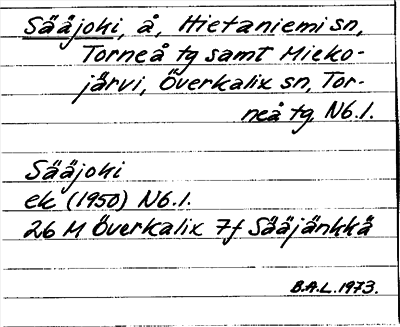 Sääjoki, å, Hietaniemi sn,
Torneå tg samt Mieko-
järvi, Överkalix sn, Tor-
neå tg. Nb.l.
Sääjoki
ek (1950) Nb.l.
26 M Överkalix 7f Sääjänkkä
B.A.L. 1973.